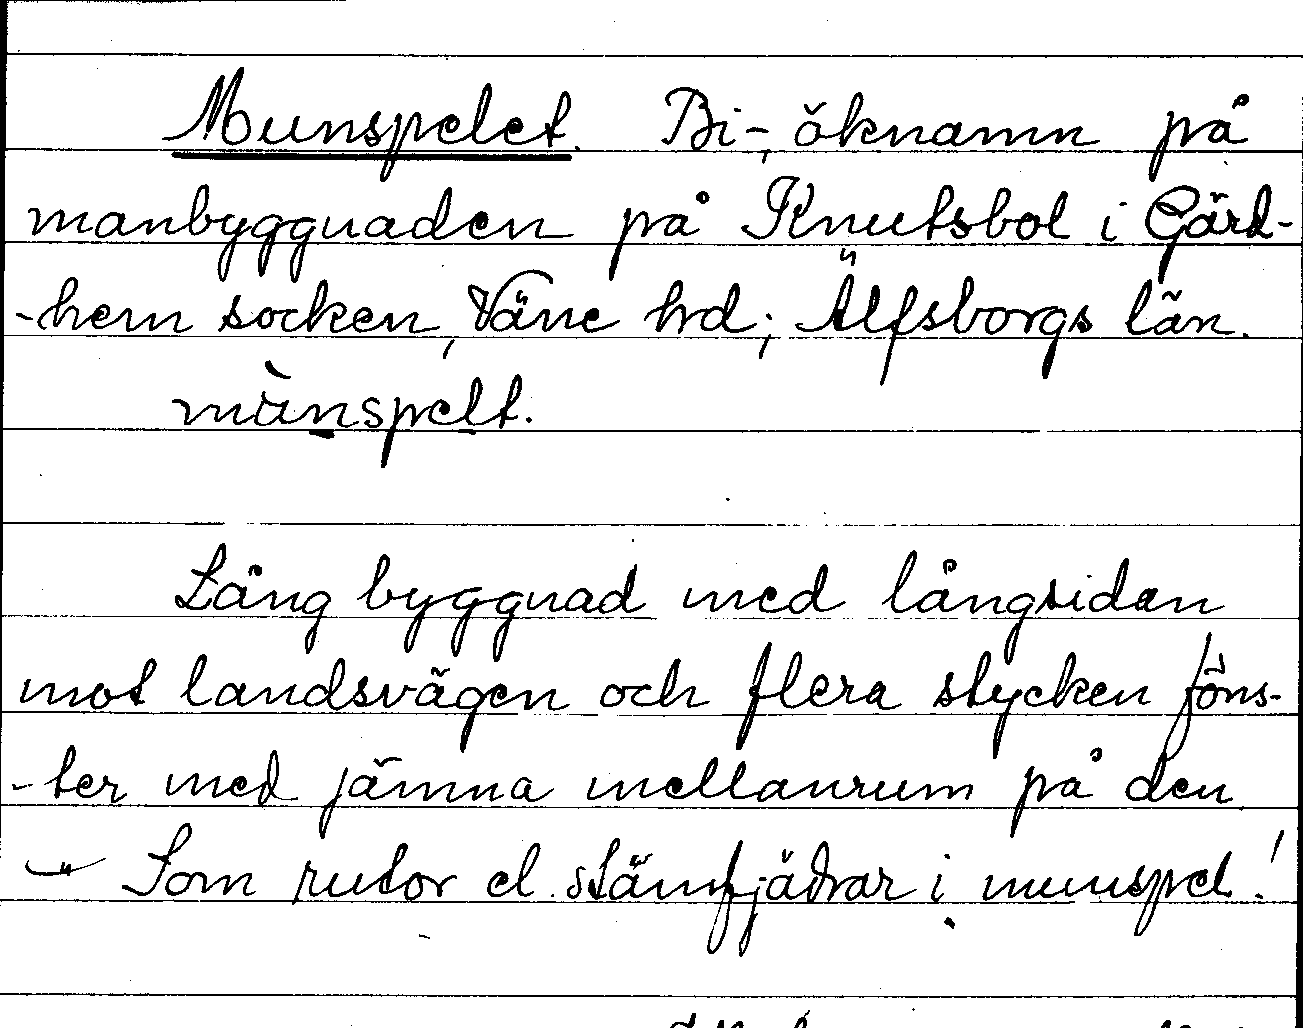 Munspelet. Bi-, öknamn på
manbyggnaden på Knutsbol i Gärd-
-hem socken, Väne hd; Älfsborgs län.
mùnspelt.
Lång byggnad med långsidan
mot landsvägen och flera stycken föns-
-ter med jämna mellanrum på den.
— " — Som rutor el. stämfjädrar i munspel!